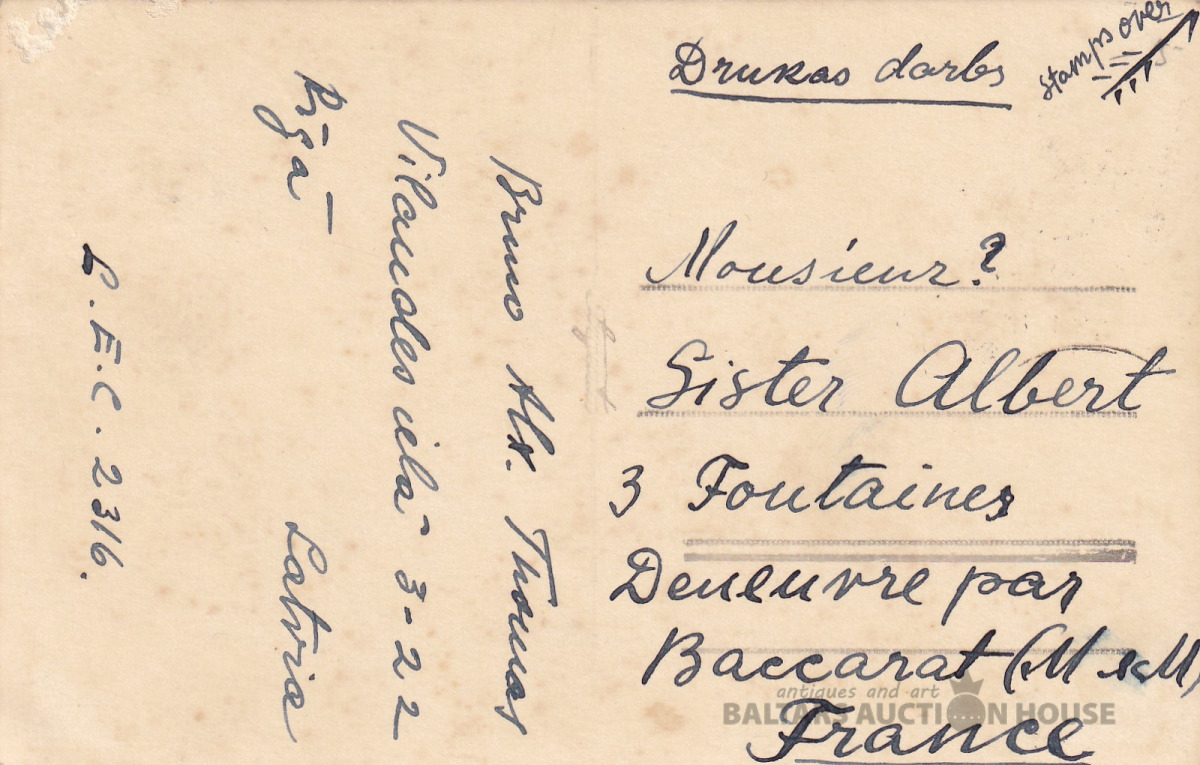 Drukas darbs
Stamps over
Monsieur?
Sister Albert
3 Fontaines
Deneuvre par
Baccarat (M & M)
France
Bruno Alx. Thomas
Vilandes ielā 3-22
Rīgā
Latvia
L.E.C. 2316.
antiques and art
BALTARS AUCTION HOUSE